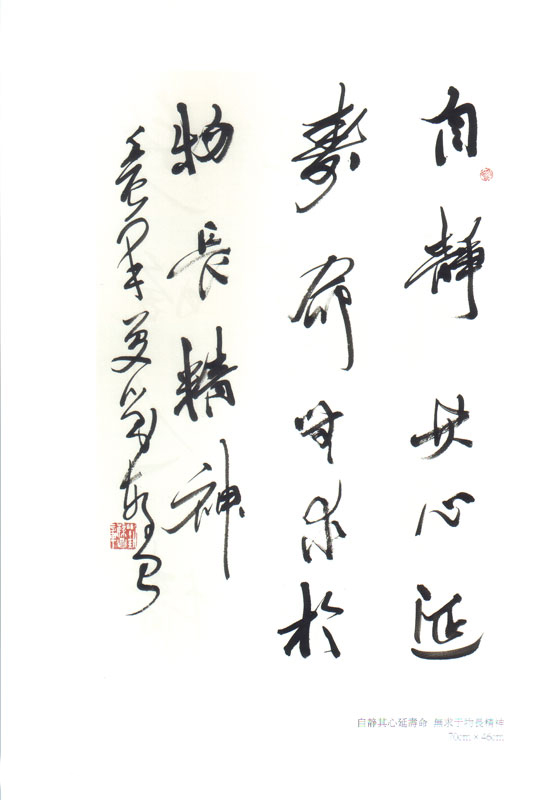 自靜其心延
壽命無求於
物長精神
自静其心延壽命 無求于物長精神
70cm×46cm